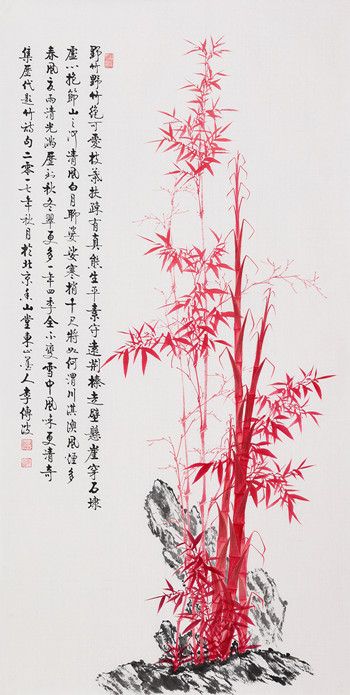 野竹野竹絶可愛枝葉扶疎有真態生平素守遠荆榛走壁懸崖穿石埭
虚心抱節山之河清風白月聊婆娑寒梢千尺將如何渭川淇澳風煙多
春風夏雨清光滿歷到秋冬翠更多一年四季全不變雪中風味更清奇
集歷代題竹詩句二零一七年秋月於北京香山堂東山美人李傳波